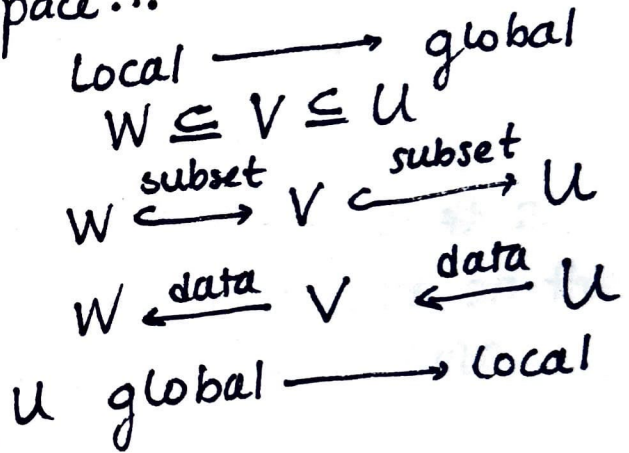 pace...
Local ⟶ global
W ⊆ V ⊆ U
subset subset
W ↪ V ↪ U
data data
W ⟵ V ⟵ U
U global ⟶ local